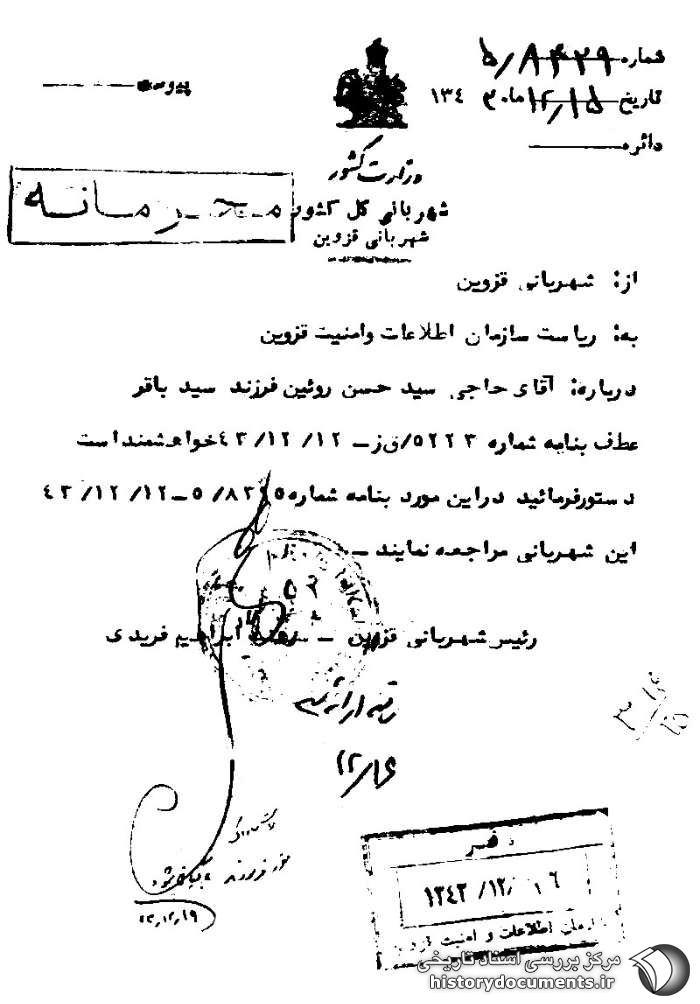 شماره ۵/۸۴۲۹
تاریخ ۱۲/۱۵ ماه ۱۳۴۳
دائره
پیوست
وزارت کشور
شهربانی کل کشور
شهربانی قزوین
محرمانه
از: شهربانی قزوین
به: ریاست سازمان اطلاعات وامنیت قزوین
درباره: آقای حاجی سید حسن روئین فرزند سید باقر
عطف بنامه شماره ۵۲۲۳/ق ز ــ ۴۳/۱۲/۱۲ خواهشمنداست
دستورفرمائید دراین مورد بنامه شماره ۵/۸۳ ــ ۴۳/۱۲/۱۲
این شهربانی مراجعه نمایند ــ
رئیس شهربانی قزوین ــ ابراهیم فریدی
۱۲/۱۶
۴۳/۱۲/۱۹
دفتر
۱۳۴۳/۱۲/۱۶
سازمان اطلاعات و امنیت قزوین
مرکز بررسی اسناد تاریخی
historydocuments.ir